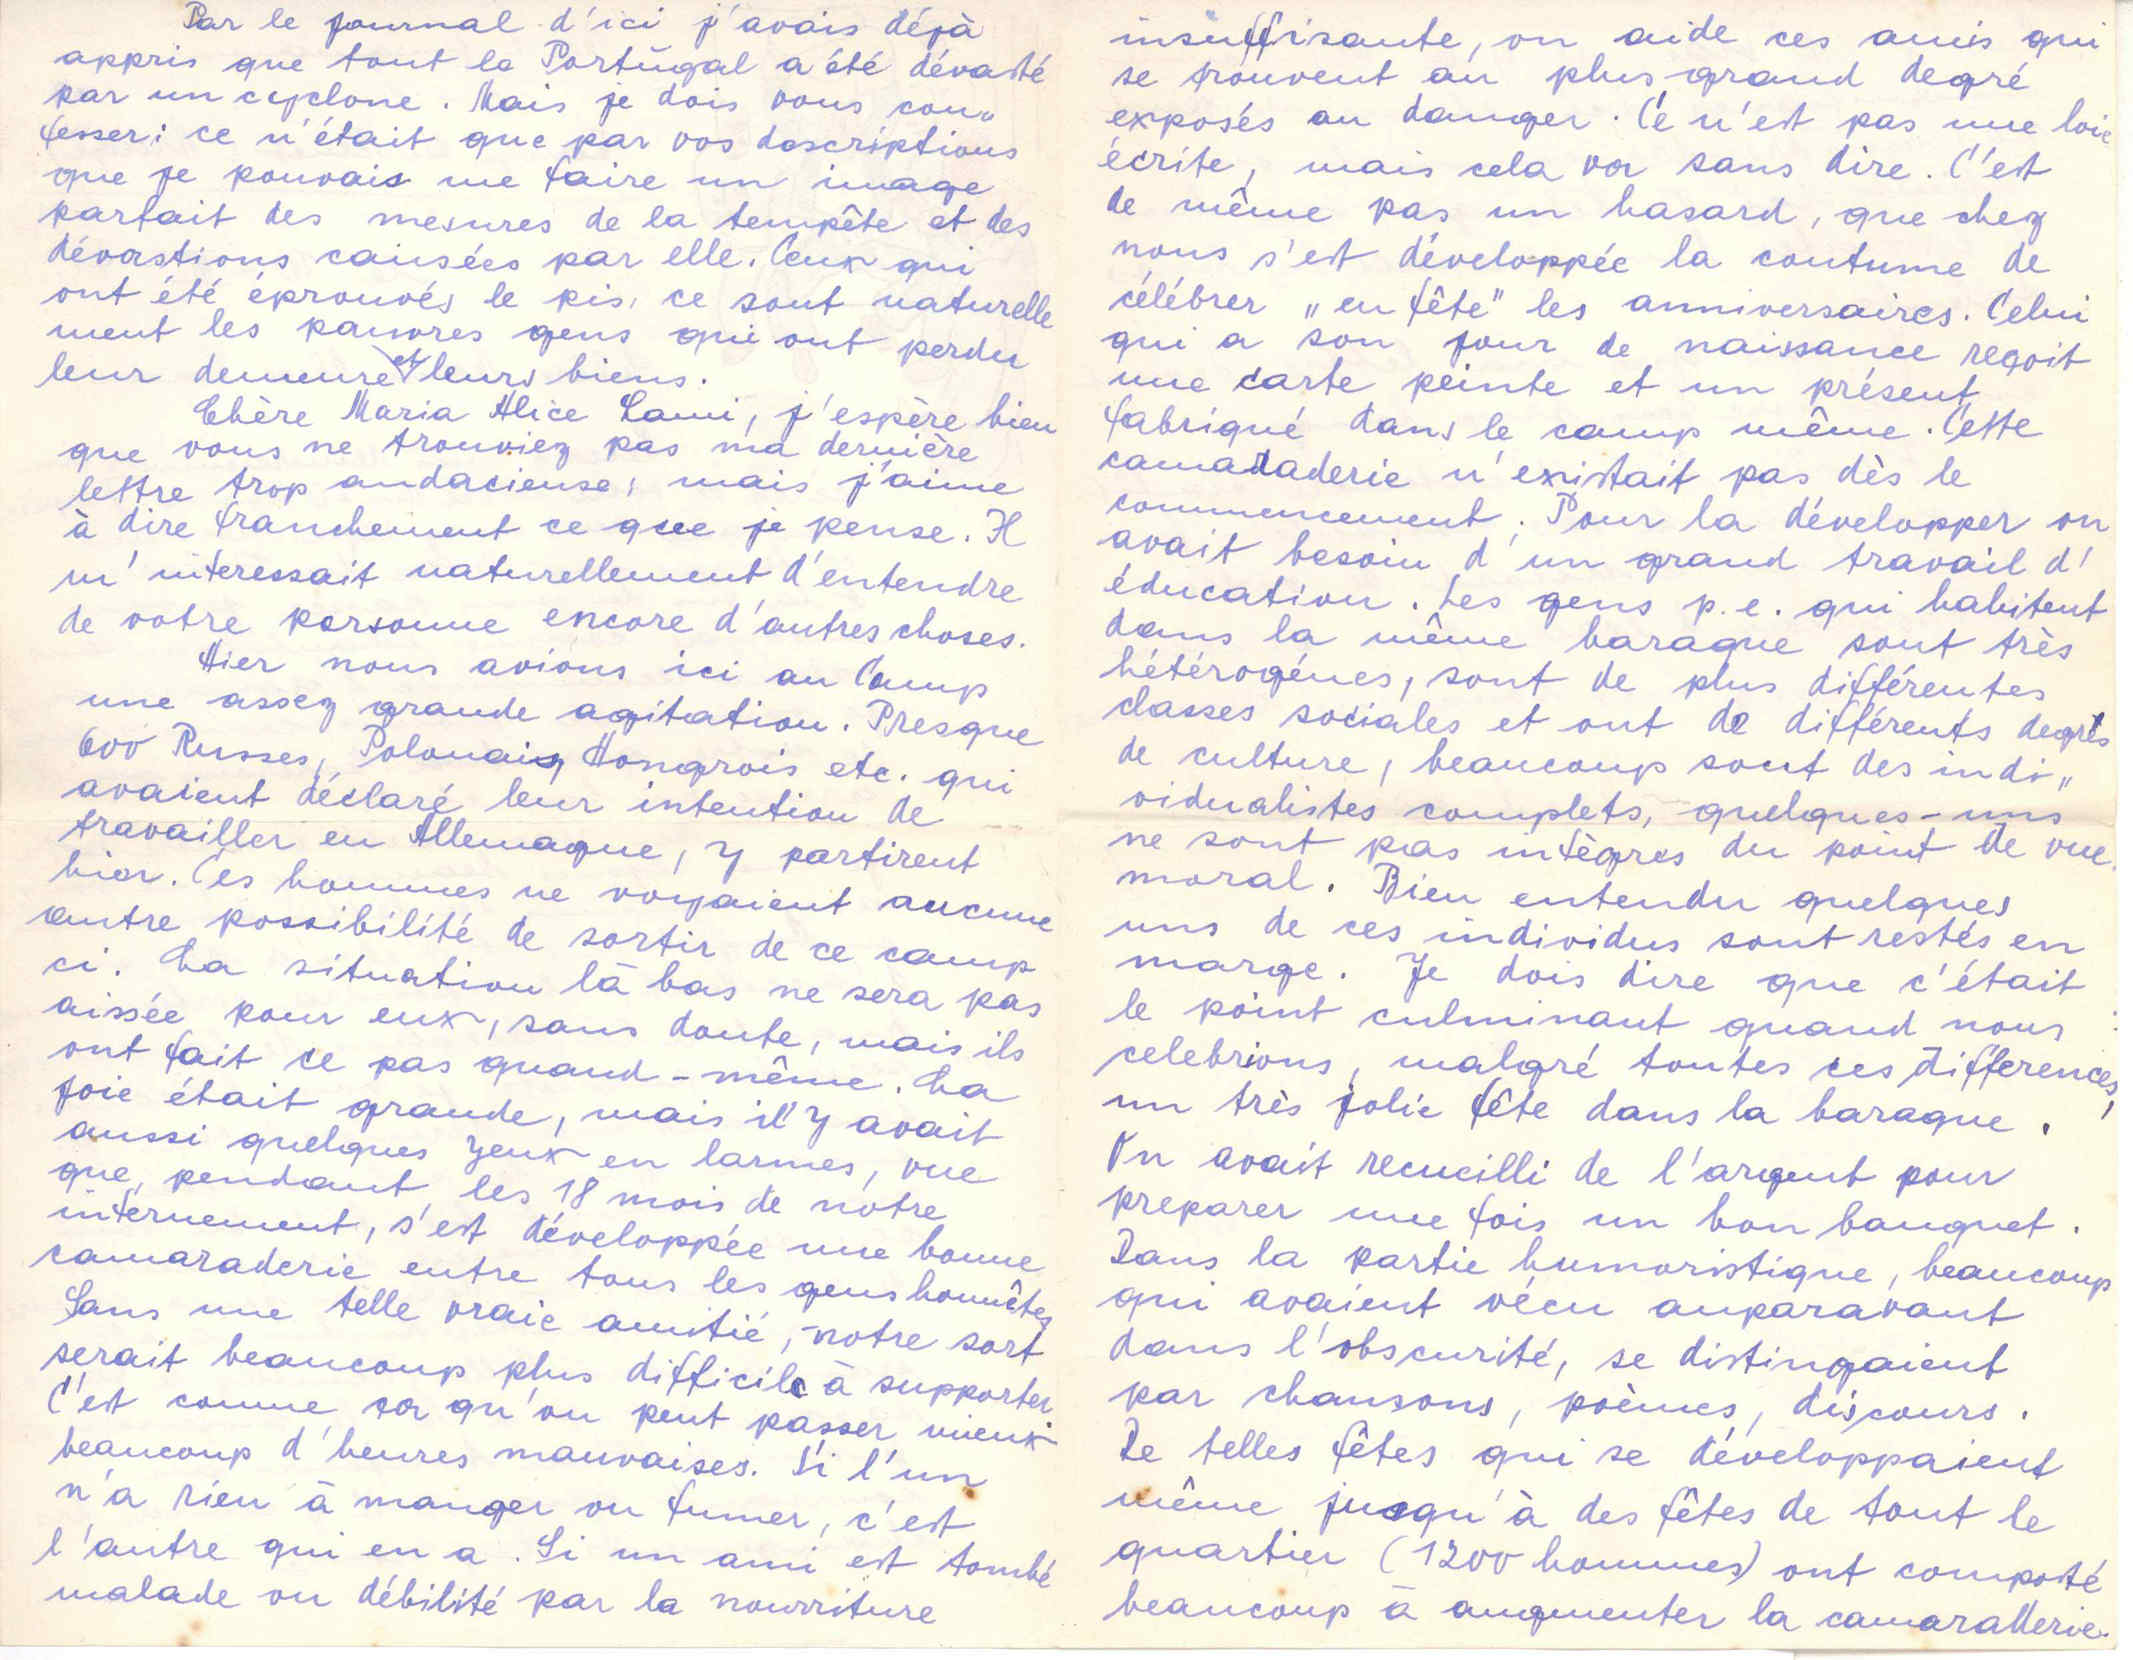 Par le journal d'ici j'avais déjà
appris que tout le Portugal a été dévasté
par un cyclone. Mais je dois vous con„
fesser: ce n'était que par vos descriptions
que je pouvais me faire un image
parfait des mesures de la tempête et des
dévastions causées par elle. Ceux qui
ont été éprouvés le pis, ce sont naturelle
ment les pauvres gens qui ont perdu
leur demeure et leurs biens.
Chère Maria Alice Lami, j'espère bien
que vous ne trouviez pas ma dernière
lettre trop audacieuse; mais j'aime
à dire franchement ce que je pense. Il
m'interessait naturellement d'entendre
de votre personne encore d'autres choses.
Hier nous avions ici au Camp
une assez grande agitation. Presque
600 Russes, Polonais, Hongrois etc. qui
avaient déclaré leur intention de
travailler en Allemagne, y partirent
hier. Ces hommes ne voyaient aucune
autre possibilité de sortir de ce camp
ci. La situation là bas ne sera pas
aissée pour eux, sans doute, mais ils
ont fait ce pas quand-même. La
joie était grande, mais il y avait
aussi quelques yeux en larmes, vue
que, pendant les 18 mois de notre
internement, s'est développée une bonne
camaraderie entre tous les gens honnêtes
Sans une telle vraie amitié, notre sort
serait beaucoup plus difficile à supporter
C'est comme ça qu'on peut passer mieux
beaucoup d'heures mauvaises. Si l'un
n'a rien à manger ou fumer, c'est
l'autre qui en a. Si un ami est tombé
malade ou débilité par la nourriture
insuffisante, on aide ces amis qui
se trouvent au plus grand degré
exposés au danger. Ce n'est pas une loie
écrite, mais cela va sans dire. C'est
de même pas un hasard, que chez
nous s'est développée la coutume de
célébrer „en fête" les anniversaires. Celui
qui a son jour de naissance reçoit
une carte peinte et un présent
fabriqué dans le camp même. Cette
camaraderie n'existait pas dès le
commencement. Pour la développer on
avait besoin d'un grand travail d'
éducation. Les gens p.e. qui habitent
dans la même baraque sont très
hétérogénes, sont de plus différentes
classes sociales et ont de différents degrés
de culture, beaucoup sont des indi„
vidualistes complets, quelques-uns
ne sont pas intègres du point de vue
moral. Bien entendu quelques
uns de ces individus sont restés en
marge. Je dois dire que c'était
le point culminant quand nous
celebrions, malgré toutes ces differences,
un très jolie fête dans la baraque.
On avait recueilli de l'argent pour
preparer une fois un bon banquet.
Dans la partie humoristique, beaucoup
qui avaient vécu auparavant
dans l'obscurité, se distingaient
par chansons, poèmes, discours.
De telles fêtes qui se développaient
même jusqu'à des fêtes de tout le
quartier (1200 hommes) ont comporté
beaucoup à augmenter la camaraderie.